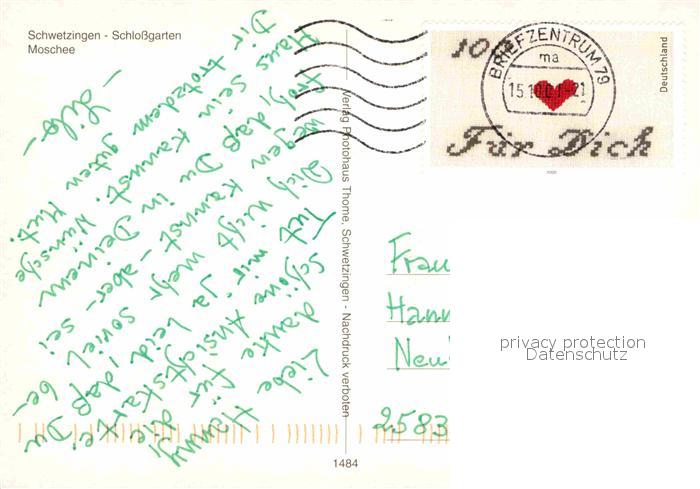 Schwetzingen - Schloßgarten
Moschee
Liebe Hanny
danke für die
schöne Ansichtskarte!
Tut mir ja leid, daß Du
Dich nicht mehr soviel be-
wegen kannst - aber - sei
froh, daß Du in Deinem
Haus sein kannst. Wünsche
Dir trotzdem guten Mut.
- Lilo -
Verlag Photohaus Thome, Schwetzingen - Nachdruck verboten
1484
Deutschland
BRIEFZENTRUM 79
ma
Für Dich
Frau
Hann
Neu
2583
privacy protection
Datenschutz